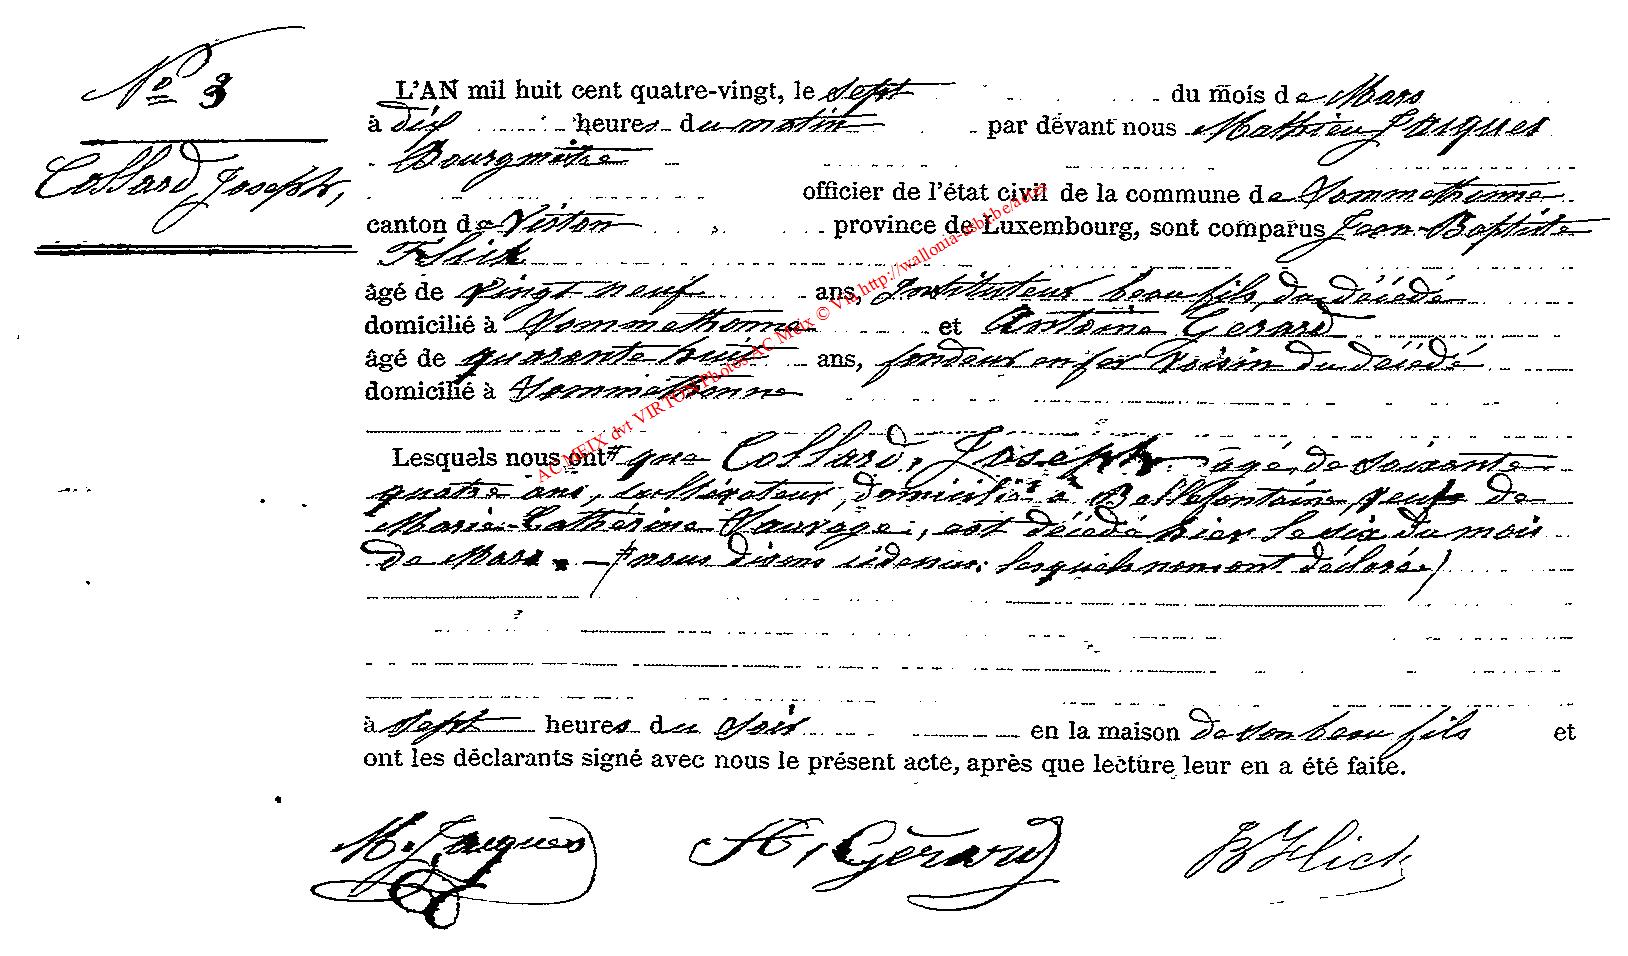 No 3
Collard, Joseph,
L'AN mil huit cent quatre-vingt, le sept du mois de Mars
à dix heures du matin par dévant nous Mathieu Jacques
Bourgmestre
officier de l'état civil de la commune de Sommethonne
canton de Virton province de Luxembourg, sont comparus Jean-Baptiste
Flick
âgé de vingt neuf ans, Instituteur beau fils du décédé
domicilié à Sommethonne et Antoine Gerard
âgé de quarante huit ans, fondeur en fer voisin du décédé
domicilié à Sommethonne
Lesquels nous ont # que Collard, Joseph âgé de soixante
quatre ans, cultivateur, domicilié à Bellefontaine, veuf de
Marie-Catherine Sauvage, est décédé hier le six du mois
de Mars. — (# nous disons cidessus: lesquels nous ont déclaré)
à sept heures du soir en la maison de son beau fils et
ont les déclarants signé avec nous le présent acte, après que lecture leur en a été faite.
M. Jacques A. Gérard B Flick
AC MEIX dvt VIRTON Photos AC Meix © Via http://wallonia-asbl.be